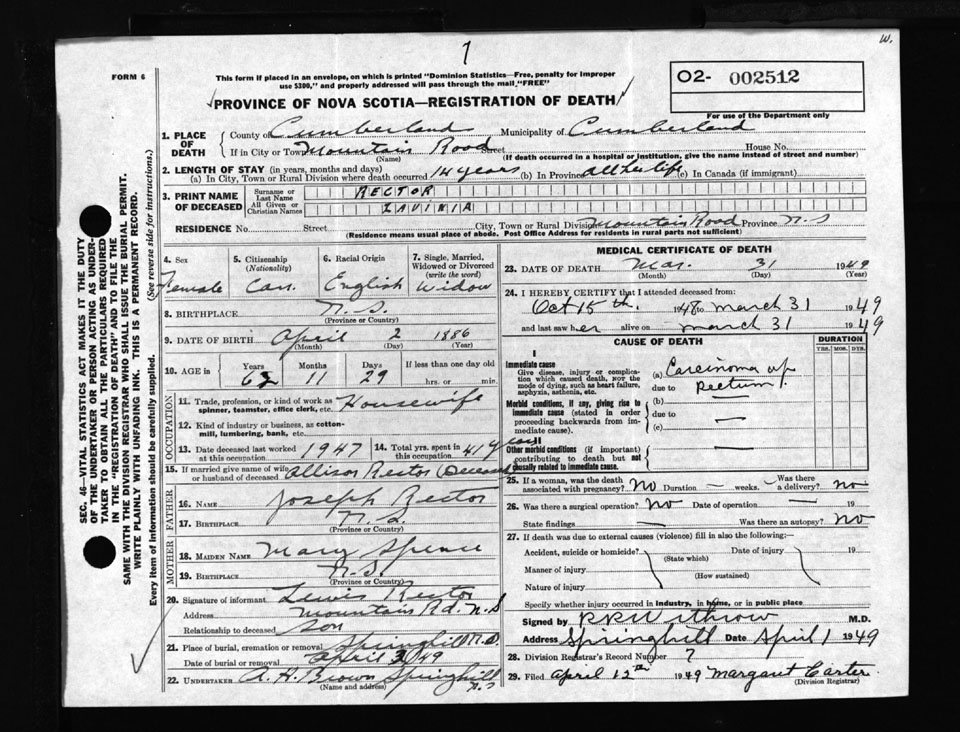 7
W.
FORM 6
This form if placed in an envelope, on which is printed "Dominion Statistics—Free, penalty for improper
use $300," and properly addressed will pass through the mail "FREE"
O2- 002512
For use of the Department only
PROVINCE OF NOVA SCOTIA—REGISTRATION OF DEATH
1. PLACE OF DEATH
County of Cumberland Municipality of Cumberland
If in City or Town Mountain Road Street House No.
(Name) (If death occurred in a hospital or institution, give the name instead of street and number)
2. LENGTH OF STAY (in years, months and days)
(a) In City, Town or Rural Division where death occurred 14 years (b) In Province all her life (c) In Canada (if immigrant)
3. PRINT NAME OF DECEASED
Surname or Last Name RECTOR
All Given or Christian Names LAVINIA
RESIDENCE No. Street City, Town or Rural Division Mountain Road Province N.S
(Residence means usual place of abode. Post Office Address for residents in rural parts not sufficient)
4. Sex Female
5. Citizenship (Nationality) Can.
6. Racial Origin English
7. Single, Married, Widowed or Divorced (write the word) Widow
8. BIRTHPLACE N.S.
(Province or Country)
9. DATE OF BIRTH April 2 1886
(Month) (Day) (Year)
10. AGE in Years 62 Months 11 Days 29 If less than one day old hrs. or min.
OCCUPATION
11. Trade, profession, or kind of work as spinner, teamster, office clerk, etc. Housewife
12. Kind of industry or business, as cotton-mill, lumbering, bank, etc.
13. Date deceased last worked at this occupation 1947
14. Total yrs. spent in this occupation 41 years
15. If married give name of wife or husband of deceased Allison Rector (Deceased)
FATHER
16. NAME Joseph Rector
17. BIRTHPLACE N.S.
(Province or Country)
MOTHER
18. MAIDEN NAME Mary Spence
19. BIRTHPLACE N.S.
(Province or Country)
20. Signature of informant Lewis Rector
Address Mountain Rd. N.S
Relationship to deceased son
21. Place of burial, cremation or removal Springhill N.S.
Date of burial or removal April 3/49
22. UNDERTAKER A. H. Brown Springhill N.S
(Name and address)
MEDICAL CERTIFICATE OF DEATH
23. DATE OF DEATH Mar. 31 1949
(Month) (Day) (Year)
24. I HEREBY CERTIFY that I attended deceased from:
Oct 15th. 1948 to march 31 1949
and last saw her alive on march 31 1949
CAUSE OF DEATH
DURATION
YRS. MOS. DYS.
I
Immediate cause
Give disease, injury or complication which caused death, NOT the mode of dying, such as heart failure, asphyxia, asthenia, etc.
(a) Carcinoma of
due to rectum.
Morbid conditions, if any, giving rise to immediate cause (stated in order proceeding backwards from immediate cause).
(b)
due to —
(c) —
II
Other morbid conditions (if important) contributing to death but not causally related to immediate cause.
25. If a woman, was the death associated with pregnancy? No Duration — weeks. Was there a delivery? no
26. Was there a surgical operation? No Date of operation — 19
State findings — Was there an autopsy? no
27. If death was due to external causes (violence) fill in also the following:—
Accident, suicide or homicide? Date of injury 19
(State which)
Manner of injury
(How sustained)
Nature of injury
Specify whether injury occurred in industry, in home, or in public place
Signed by M.D.
Address Springhill Date April 1 1949
28. Division Registrar's Record Number 7
29. Filed April 12th 1949 Margaret Carter
(Division Registrar)
SEC. 46—VITAL STATISTICS ACT MAKES IT THE DUTY
OF THE UNDERTAKER OR PERSON ACTING AS UNDER-
TAKER TO OBTAIN ALL THE PARTICULARS REQUIRED
IN THE "REGISTRATION OF DEATH" AND TO FILE THE
SAME WITH THE DIVISION REGISTRAR WHO SHALL ISSUE THE BURIAL PERMIT.
WRITE PLAINLY WITH UNFADING INK. THIS IS A PERMANENT RECORD.
Every item of information should be carefully supplied. (See reverse side for instructions.)